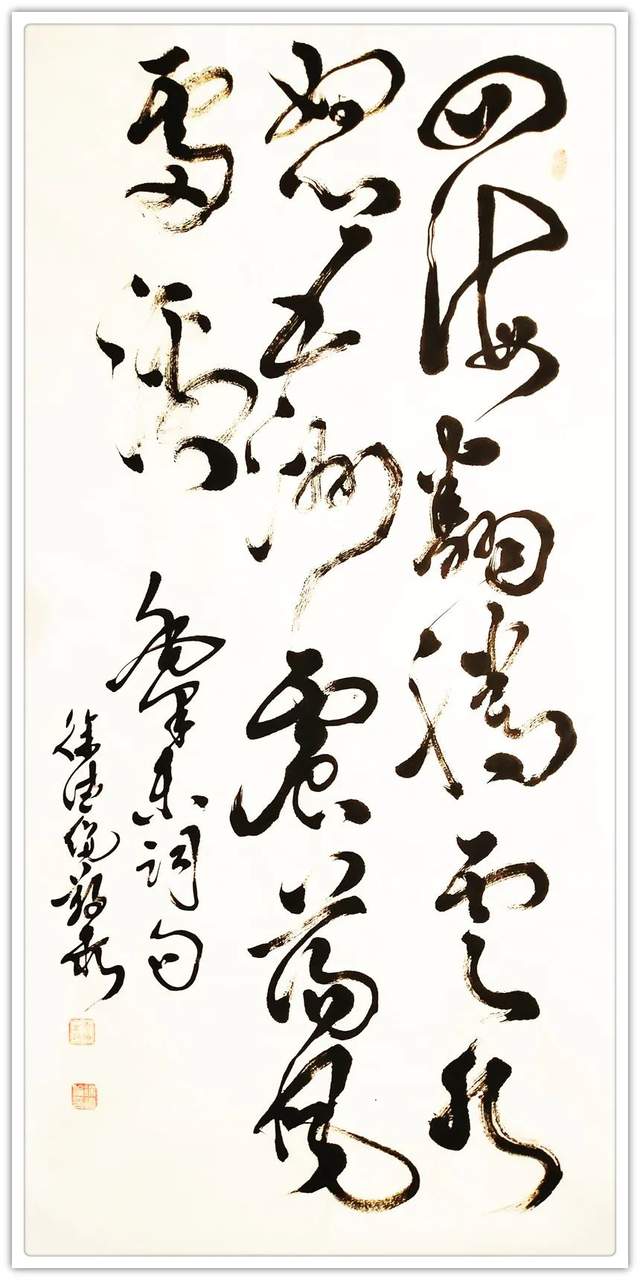 四海翻腾云水
怒五洲震荡风
雷激
毛泽东词句
徐德